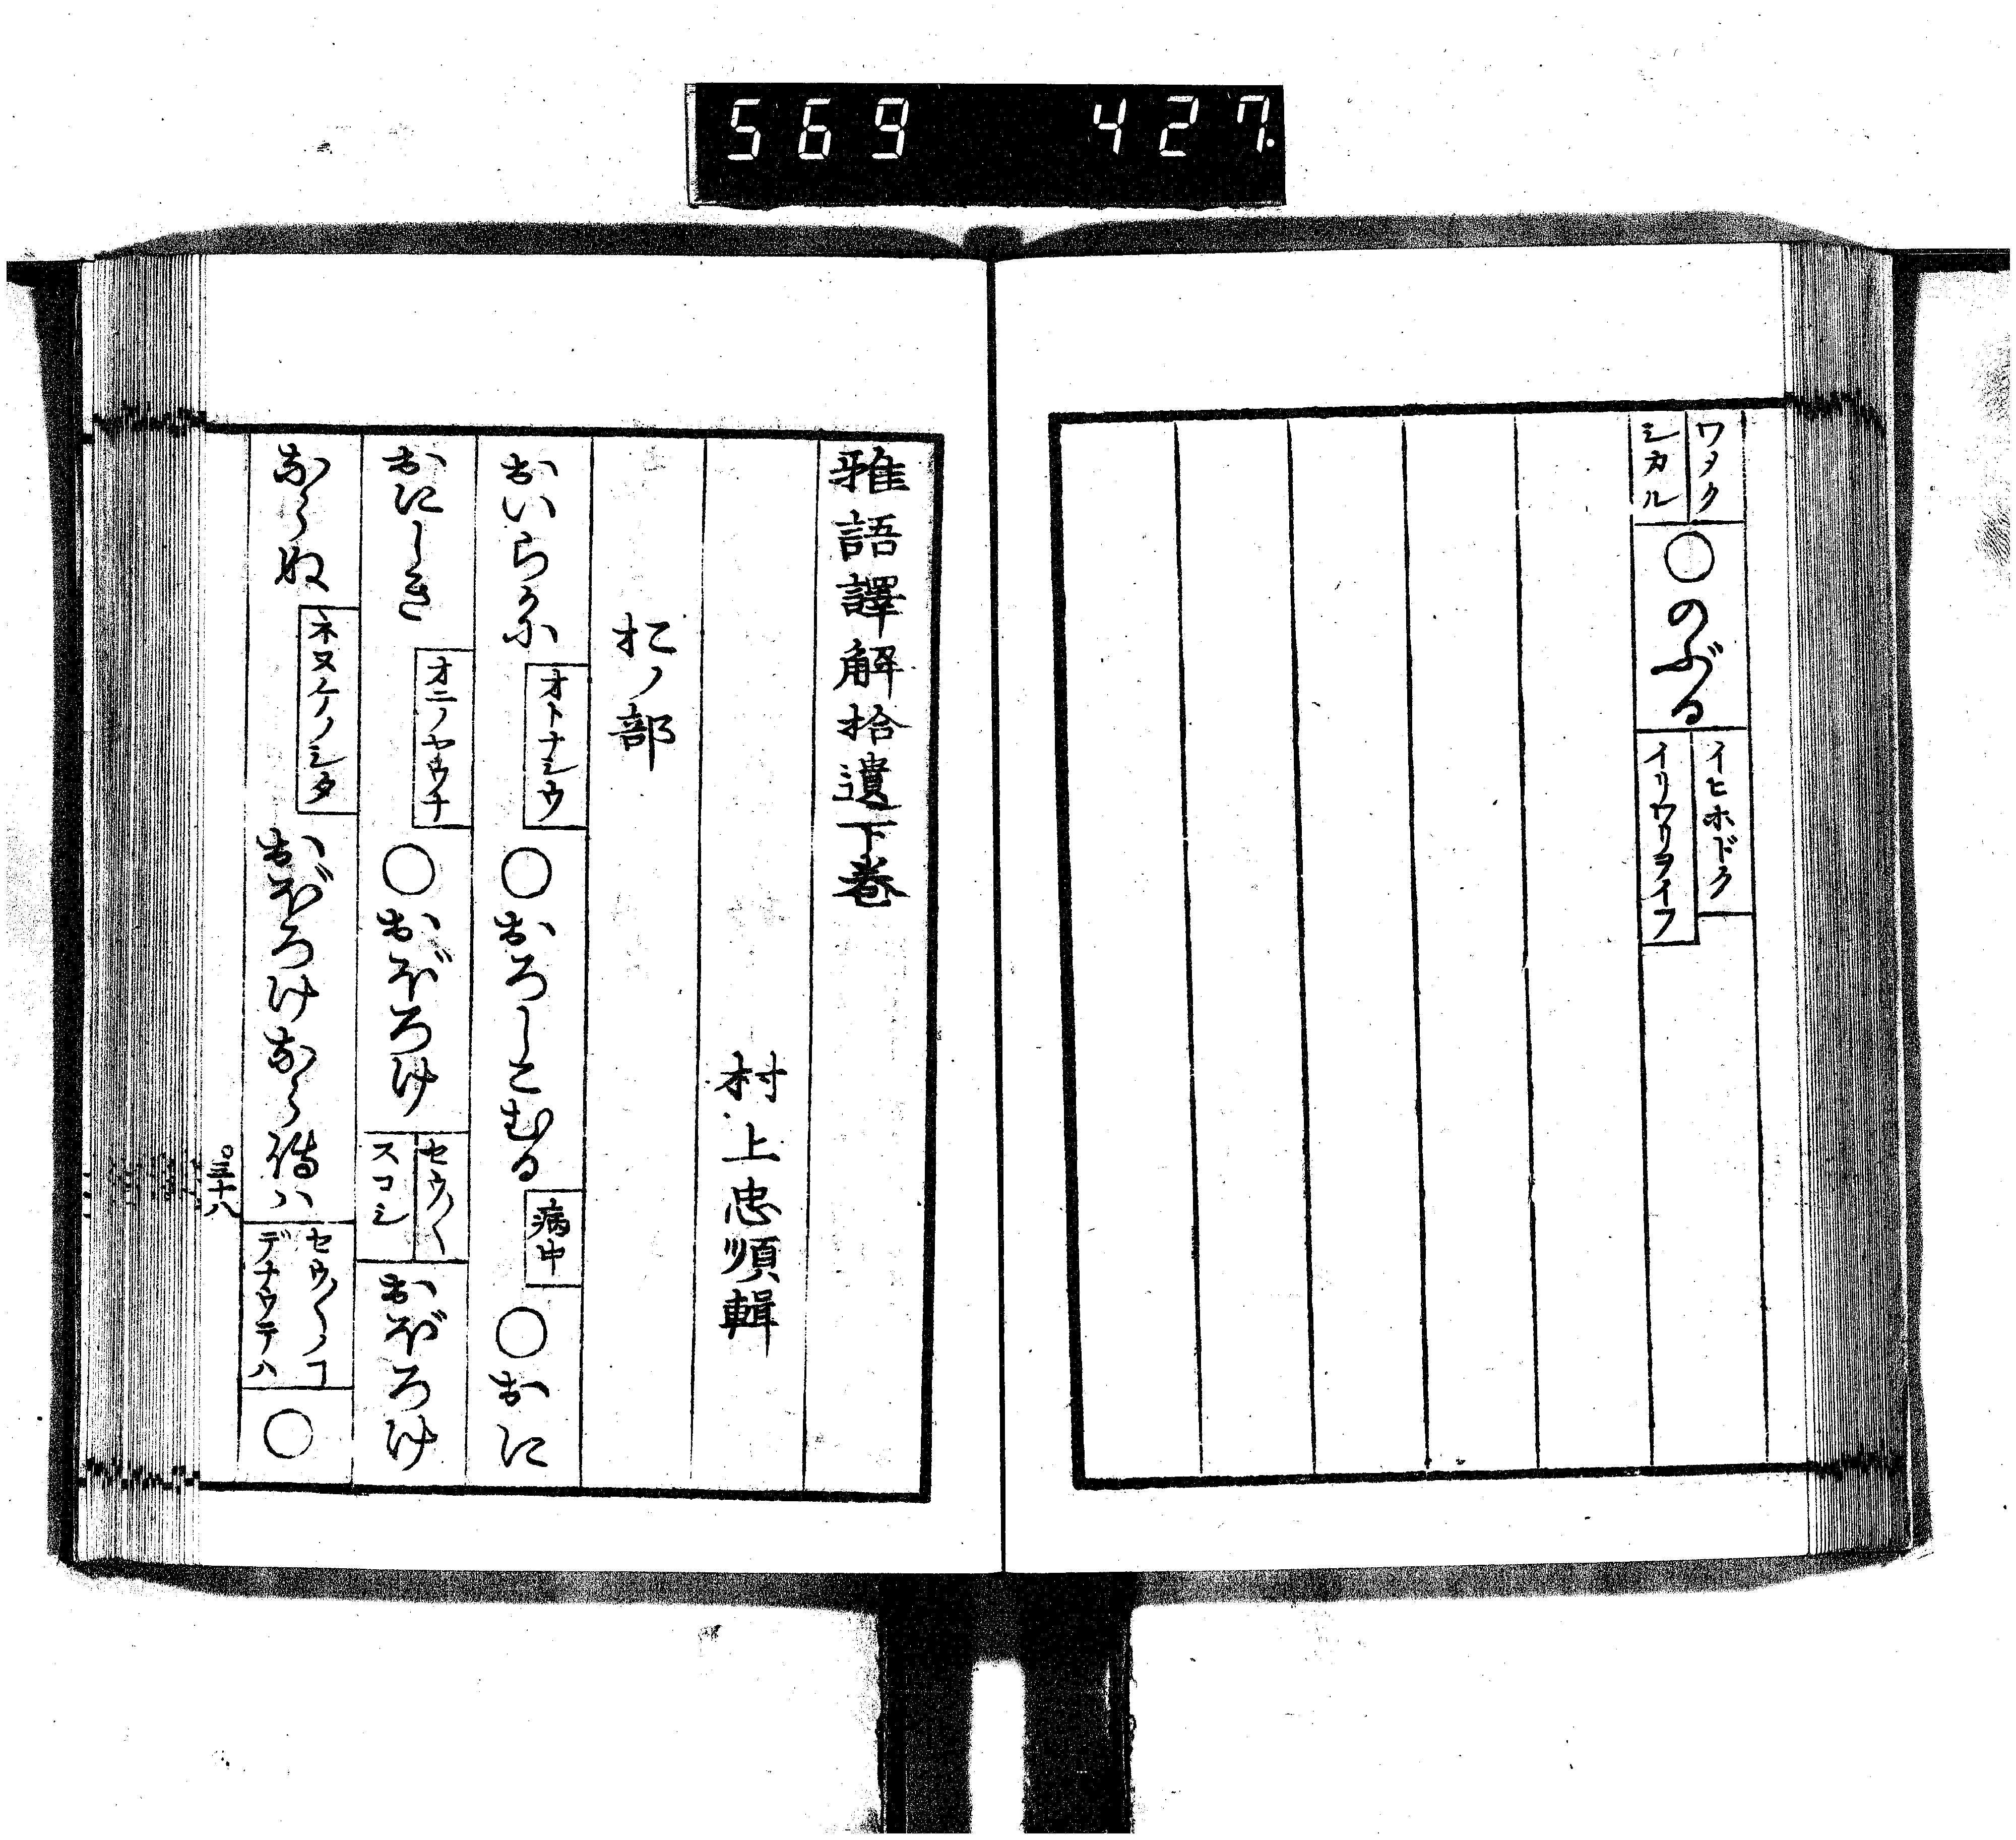 569 427.
ワタク
シカル
○のぶる
イヒホドク
イリワリヲイフ
雅語譯解拾遺下巻
村上忠順輯
オノ部
おいらかに オトナシウ ○おろしこむる 病中 ○おに
おにしき オニノヤウナ ○おぼろけ セウ〳〵 スコシ おぼろけ
ならぬ おぼろけならでは セウ〳〵ノコ デナウテハ ○
○三十八